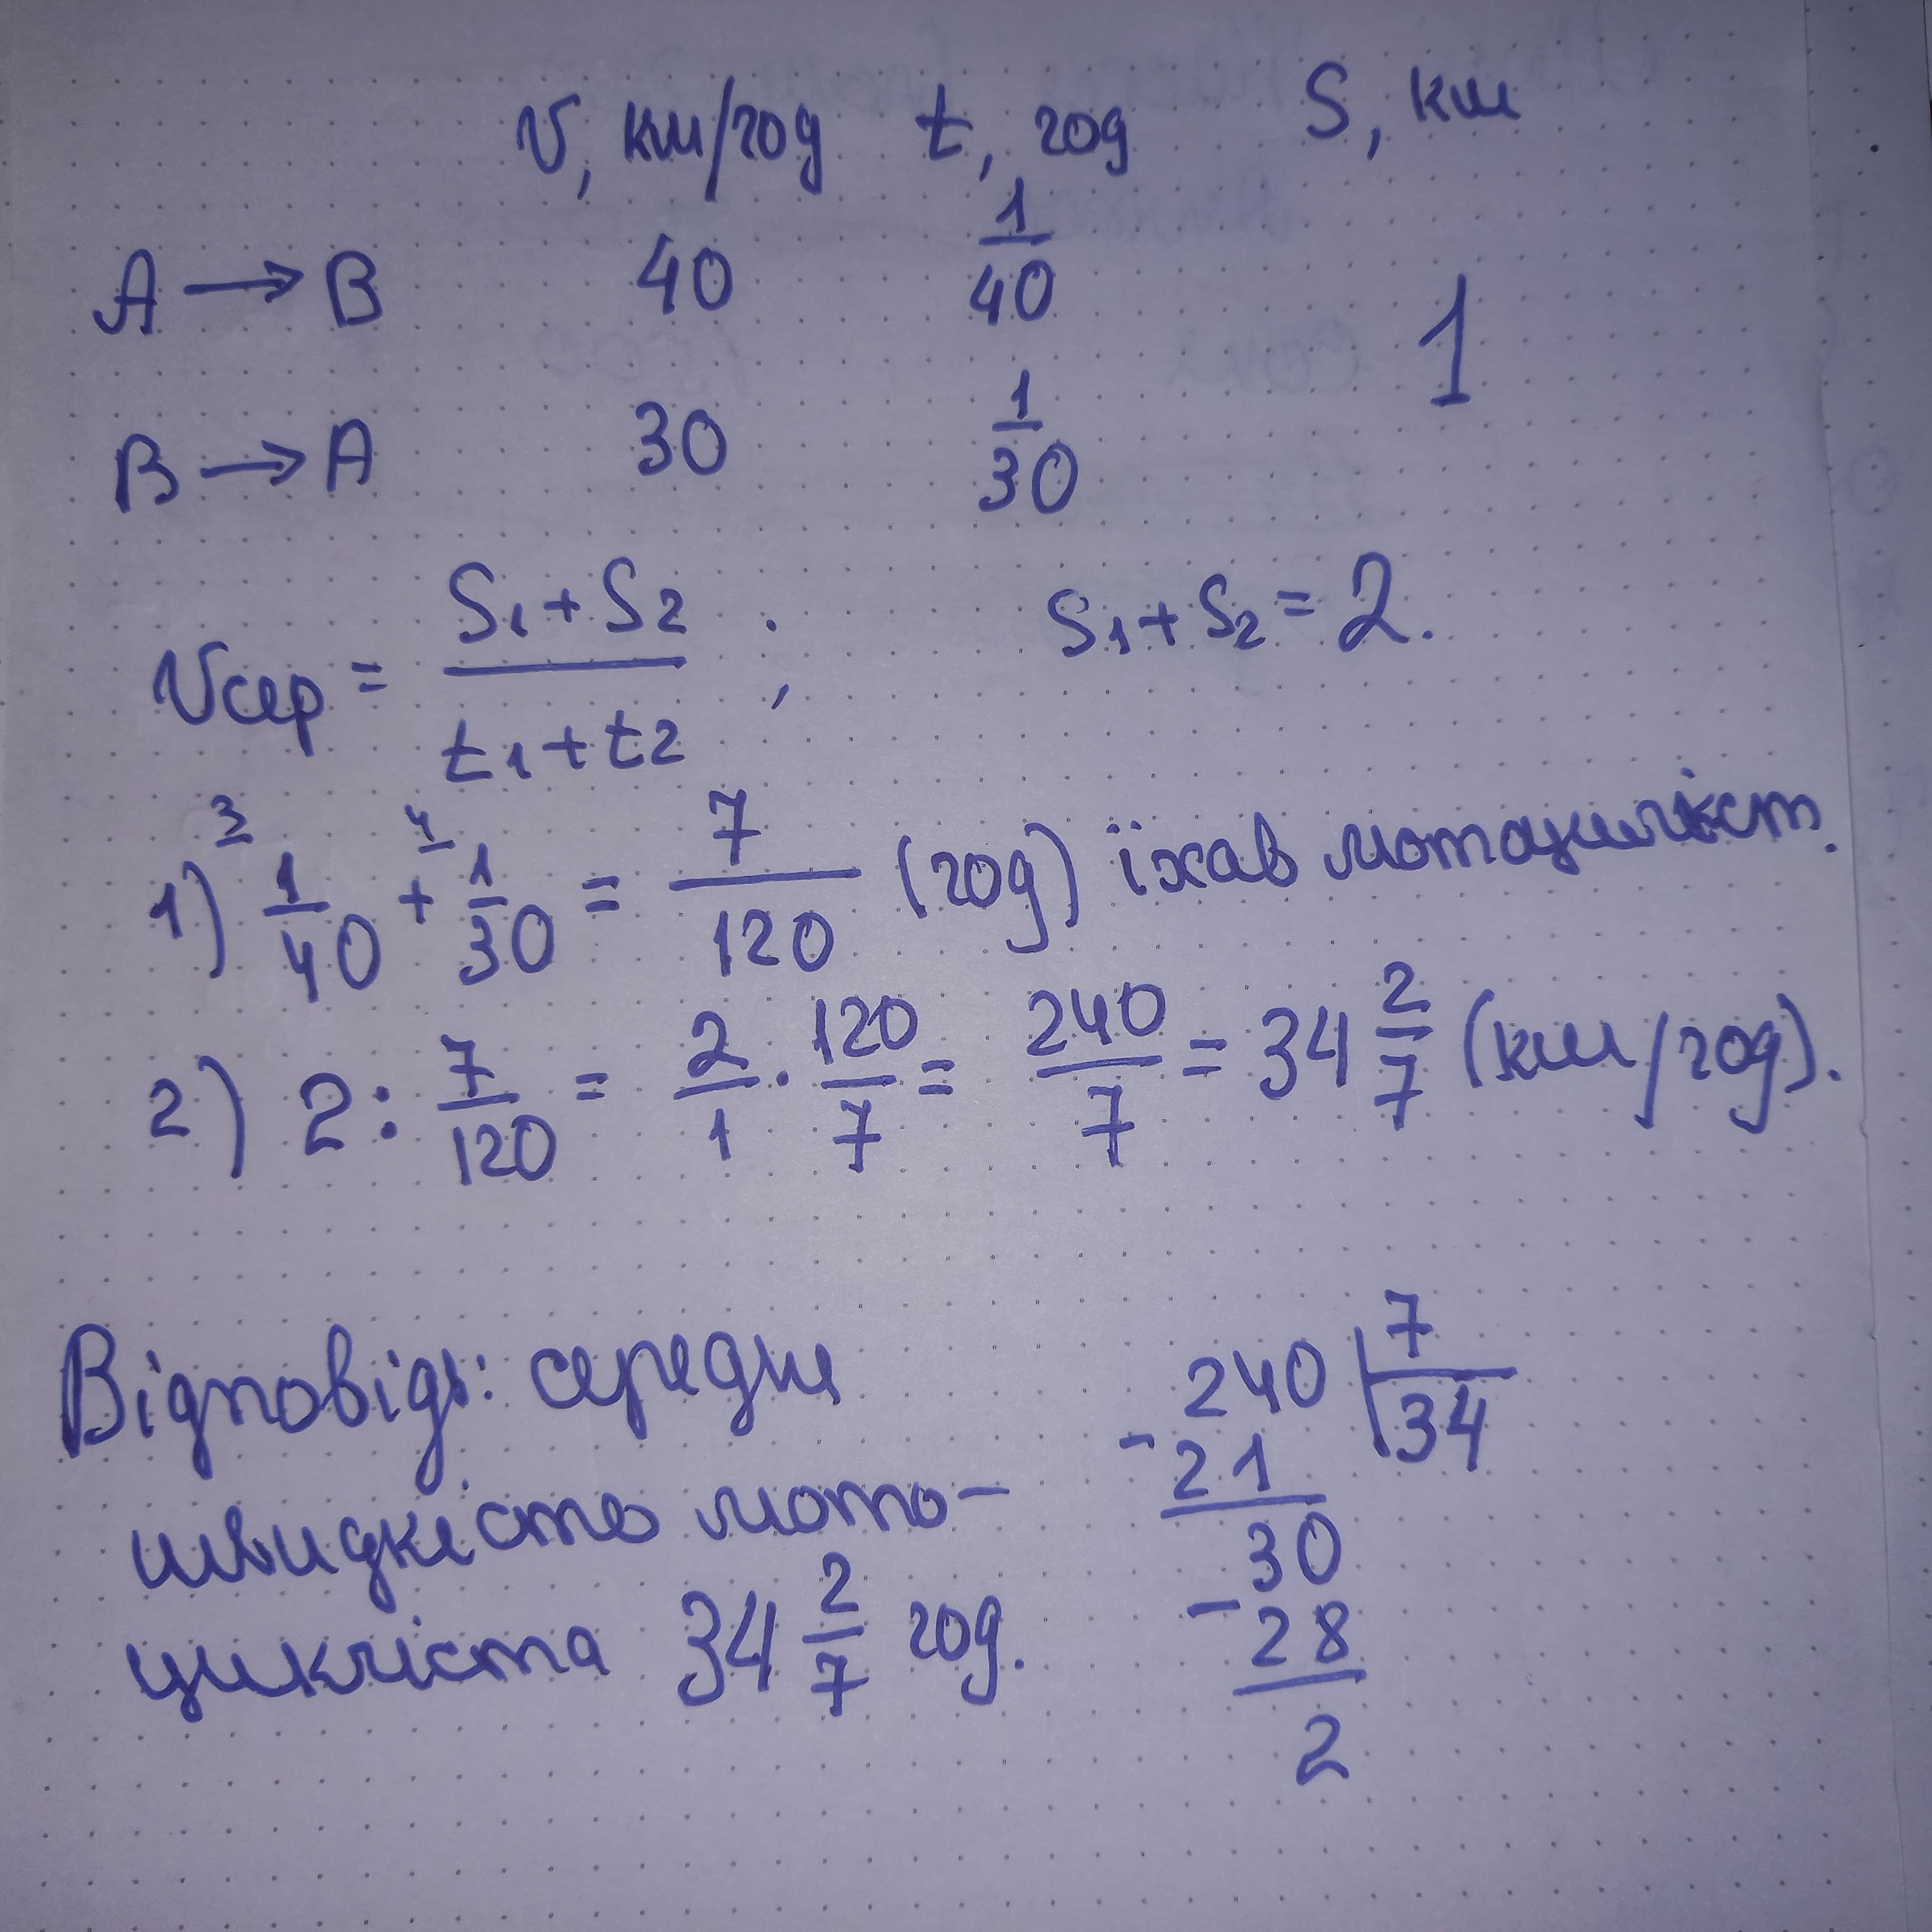 v, км/год t, год S, км
A → B 40 1/40
1
B → A 30 1/30
vсер = (S1 + S2)/(t1 + t2) ; S1 + S2 = 2.
1) ³ 1/40 + ⁴ 1/30 = 7/120 (год) їхав мотоцикліст.
2) 2 : 7/120 = 2/1 · 120/7 = 240/7 = 34 2/7 (км/год).
Відповідь: середня
швидкість мото-
цикліста 34 2/7 год.
240 | 7
- 21 | 34
30
- 28
2